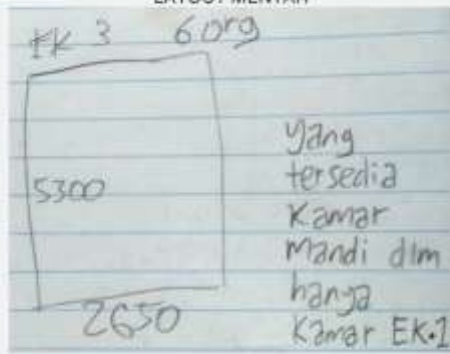 LAYOUT MENTAH
EK 3 6 org
5300
2650
yang
tersedia
Kamar
mandi dlm
hanya
Kamar EK.1